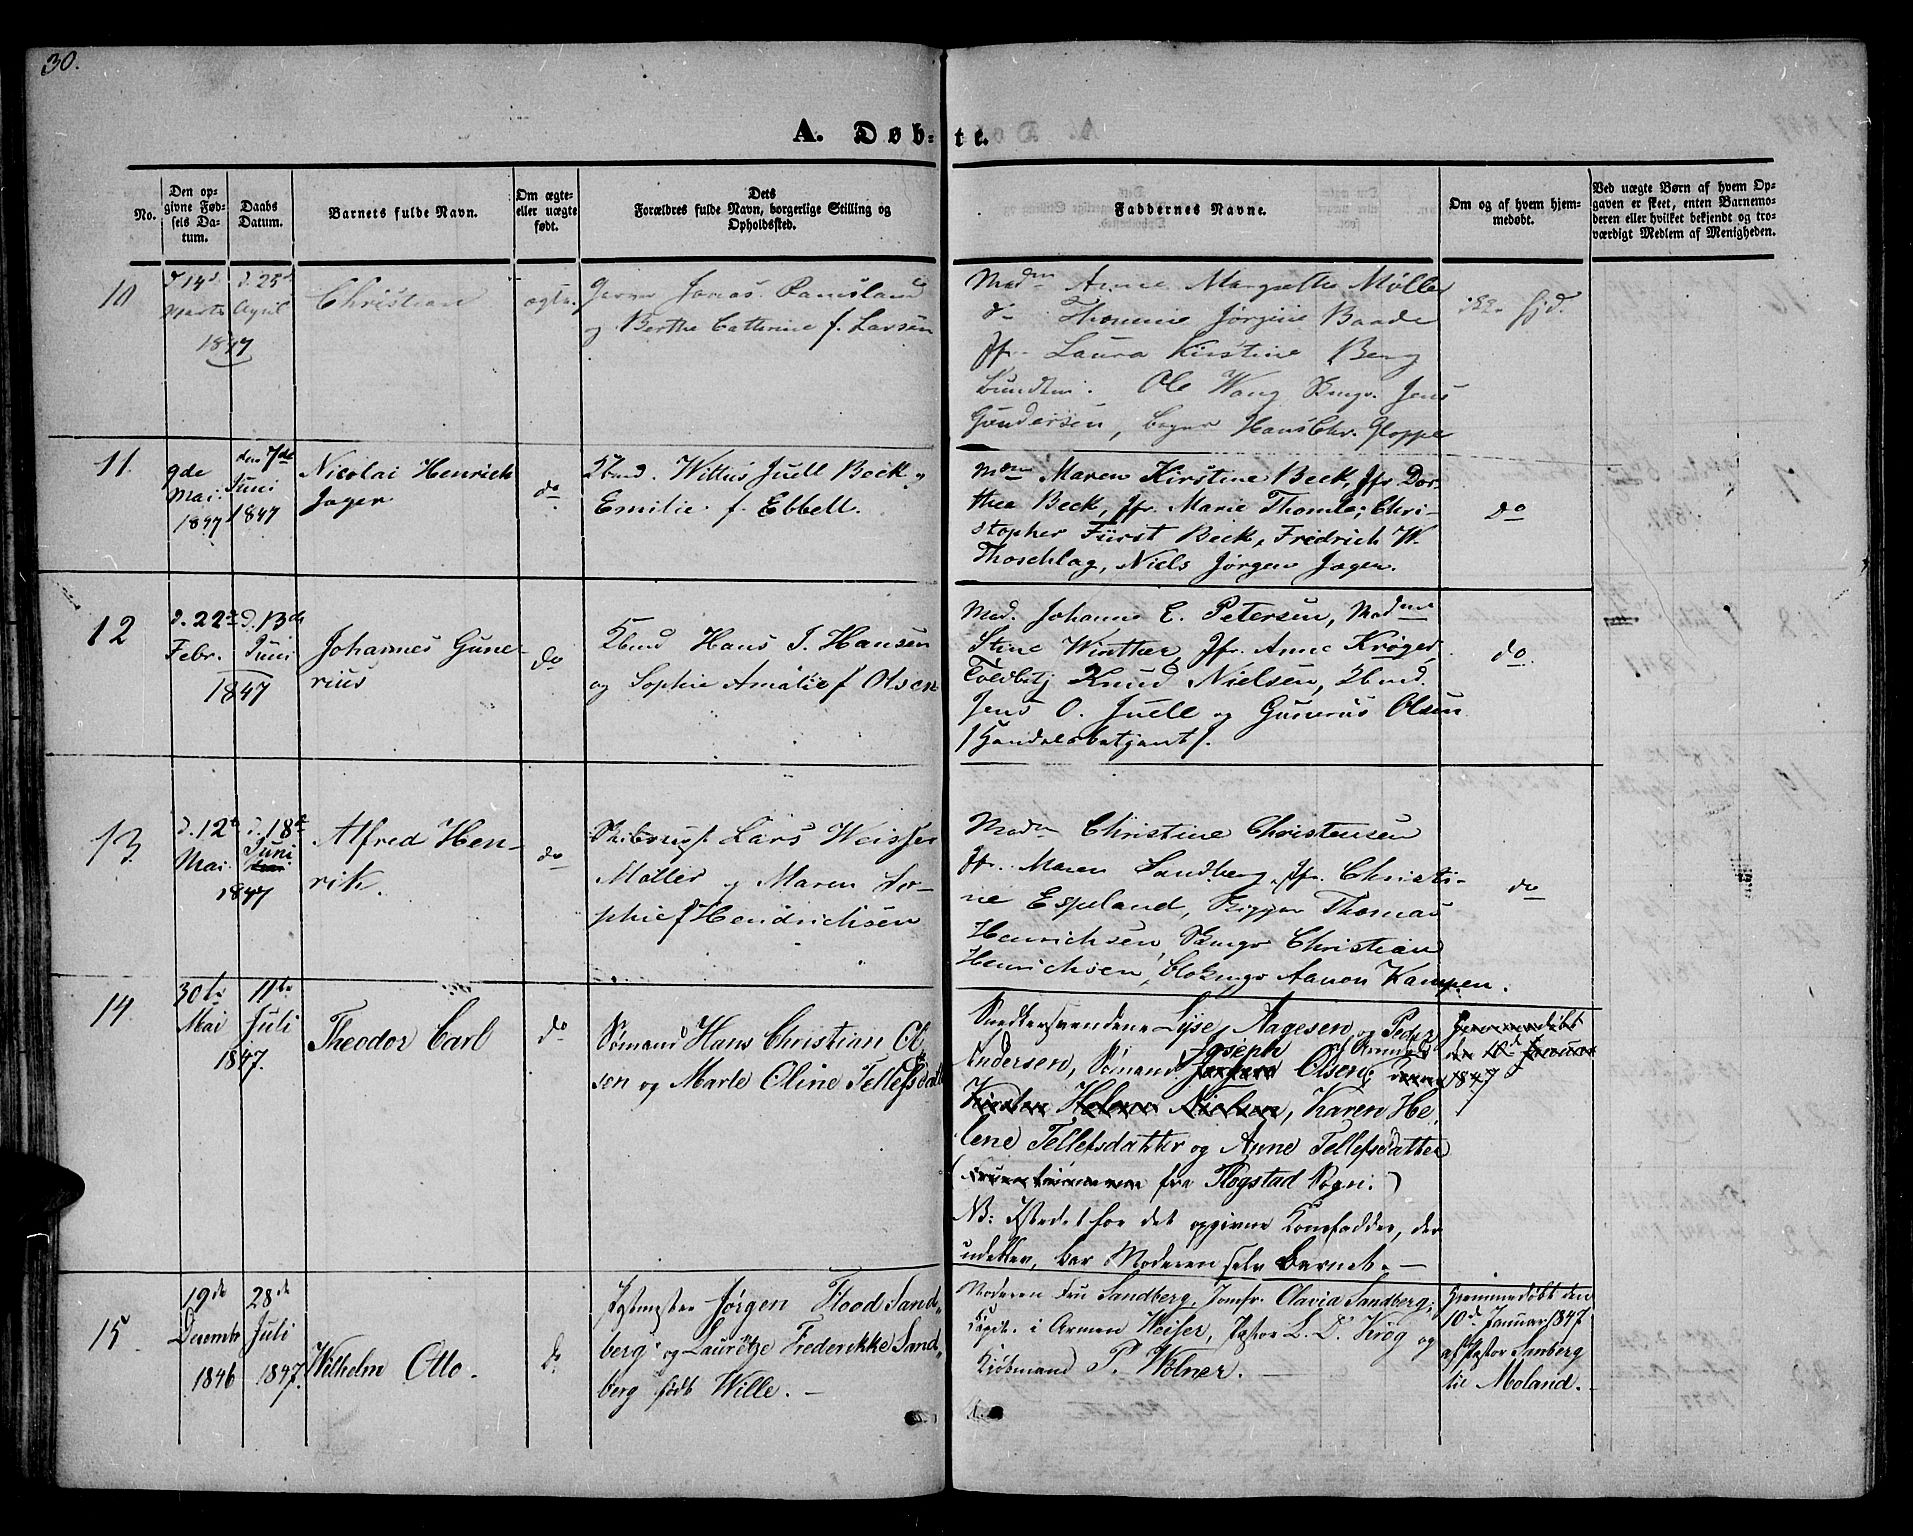 30.
A. Døb-te.
No.
Den op-
givne Fød-
sels Da-
tum.
Daabs
Datum.
Barnets fulde Navn.
Om ægte-
eller uægte
født.
Dets
Forældres fulde Navn, borgerlige Stilling og
Opholdssted.
Faddernes Navne.
Om og af hvem hjem-
medøbt.
Ved uægte Børn af hvem Op-
gaven er skeet, enten Barnemo-
deren eller hvilket bekjendt og tro-
værdigt Medlem af Menigheden.
10
d 14d
Marts
d. 25d
April
1847
Christian
ægte.
Jonas Ramsland
og Berthe Cathrine f. Larsen
Madm Anne Margrethe Møller
do Thomine Jørgine Baade
Jfr. Laura Kirstine Berg
Ole Wang Jens
Gundersen, Hans Chr. Gloppe
ikke hjd.
11.
9de
Mai.
1847
den 7de
Juni
1847
Nicolai Henrich
Jager
do
Skbmd. Wittus Juell Beck,
Emilie f. Ebbell.
Mdm Maren Kirstine Beck, Jfr Dor-
thea Beck, Jfr. Marie Thomle; Chri-
stopher Fürst Beck, Fridrich W.
Thoschlag, Niels Jørgen Jager.
do
12
d. 22de
Febr.
d. 13de
Juni
1847
Johannes Gune-
rius
do
Skbmd Hans J. Hansen
og Sophie Amalie f Olsen
Mad. Johanne E. Petersen, Madme
Stine Winther, Jfr. Anne Krøger,
Toldbetj Knud Nielsen, Skbmd.
Jens O. Juell og Gunerus Olsen
/ Handelsbetjent /.
do.
13.
d. 12te
Mai.
d. 18de
Juni
1847
Alfred Hen-
rik.
do
Lars Weisser
Møller og Maren So-
phie f Hendrichsen
Madm Christine Christensen
Jfr. Maren Sandberg, Jfr. Christi-
ne Espeland, Skipper Thomas
Henrichsen, Christian
Henrichsen, Aanon Kampen.
do
14.
30te
Mai
11te
Juli
1847.
Theodor Carl
do
Sømand Hans Christian Ol-
sen og Marte Oline Tellefsdatter
Snedkersvendene Lyse Aagesen og Peder
Andersen, Sømand Joseph Olsen,
Kirsten Helene Nielsen, Karen He-
lene Tellefsdatter og Anne Tellefsdatter
fra Flogstad Sogn.)
NB: Istedet for det opgivne Konefadder, der
udeblev, bar Moderen selv Barnet. —
Hjemmedøbt
den 10d Januar
1847
15.
19de
Decembr
1846
28de
Juli
1847.
Wilhelm Otto.
do
Postmester Jørgen Flood Sand-
berg og Lauretze Frederikke Sand-
berg født Wille. —
Moderen Fru Sandberg, Jomfr. Olavia Sandberg;
Capit. i Armen Weiser, Pastor L. D. Krog og
Kjøbmand P. Wolner. —
Hjemmedøbt den
10d Januar 1847
af Pastor
til Moland. —